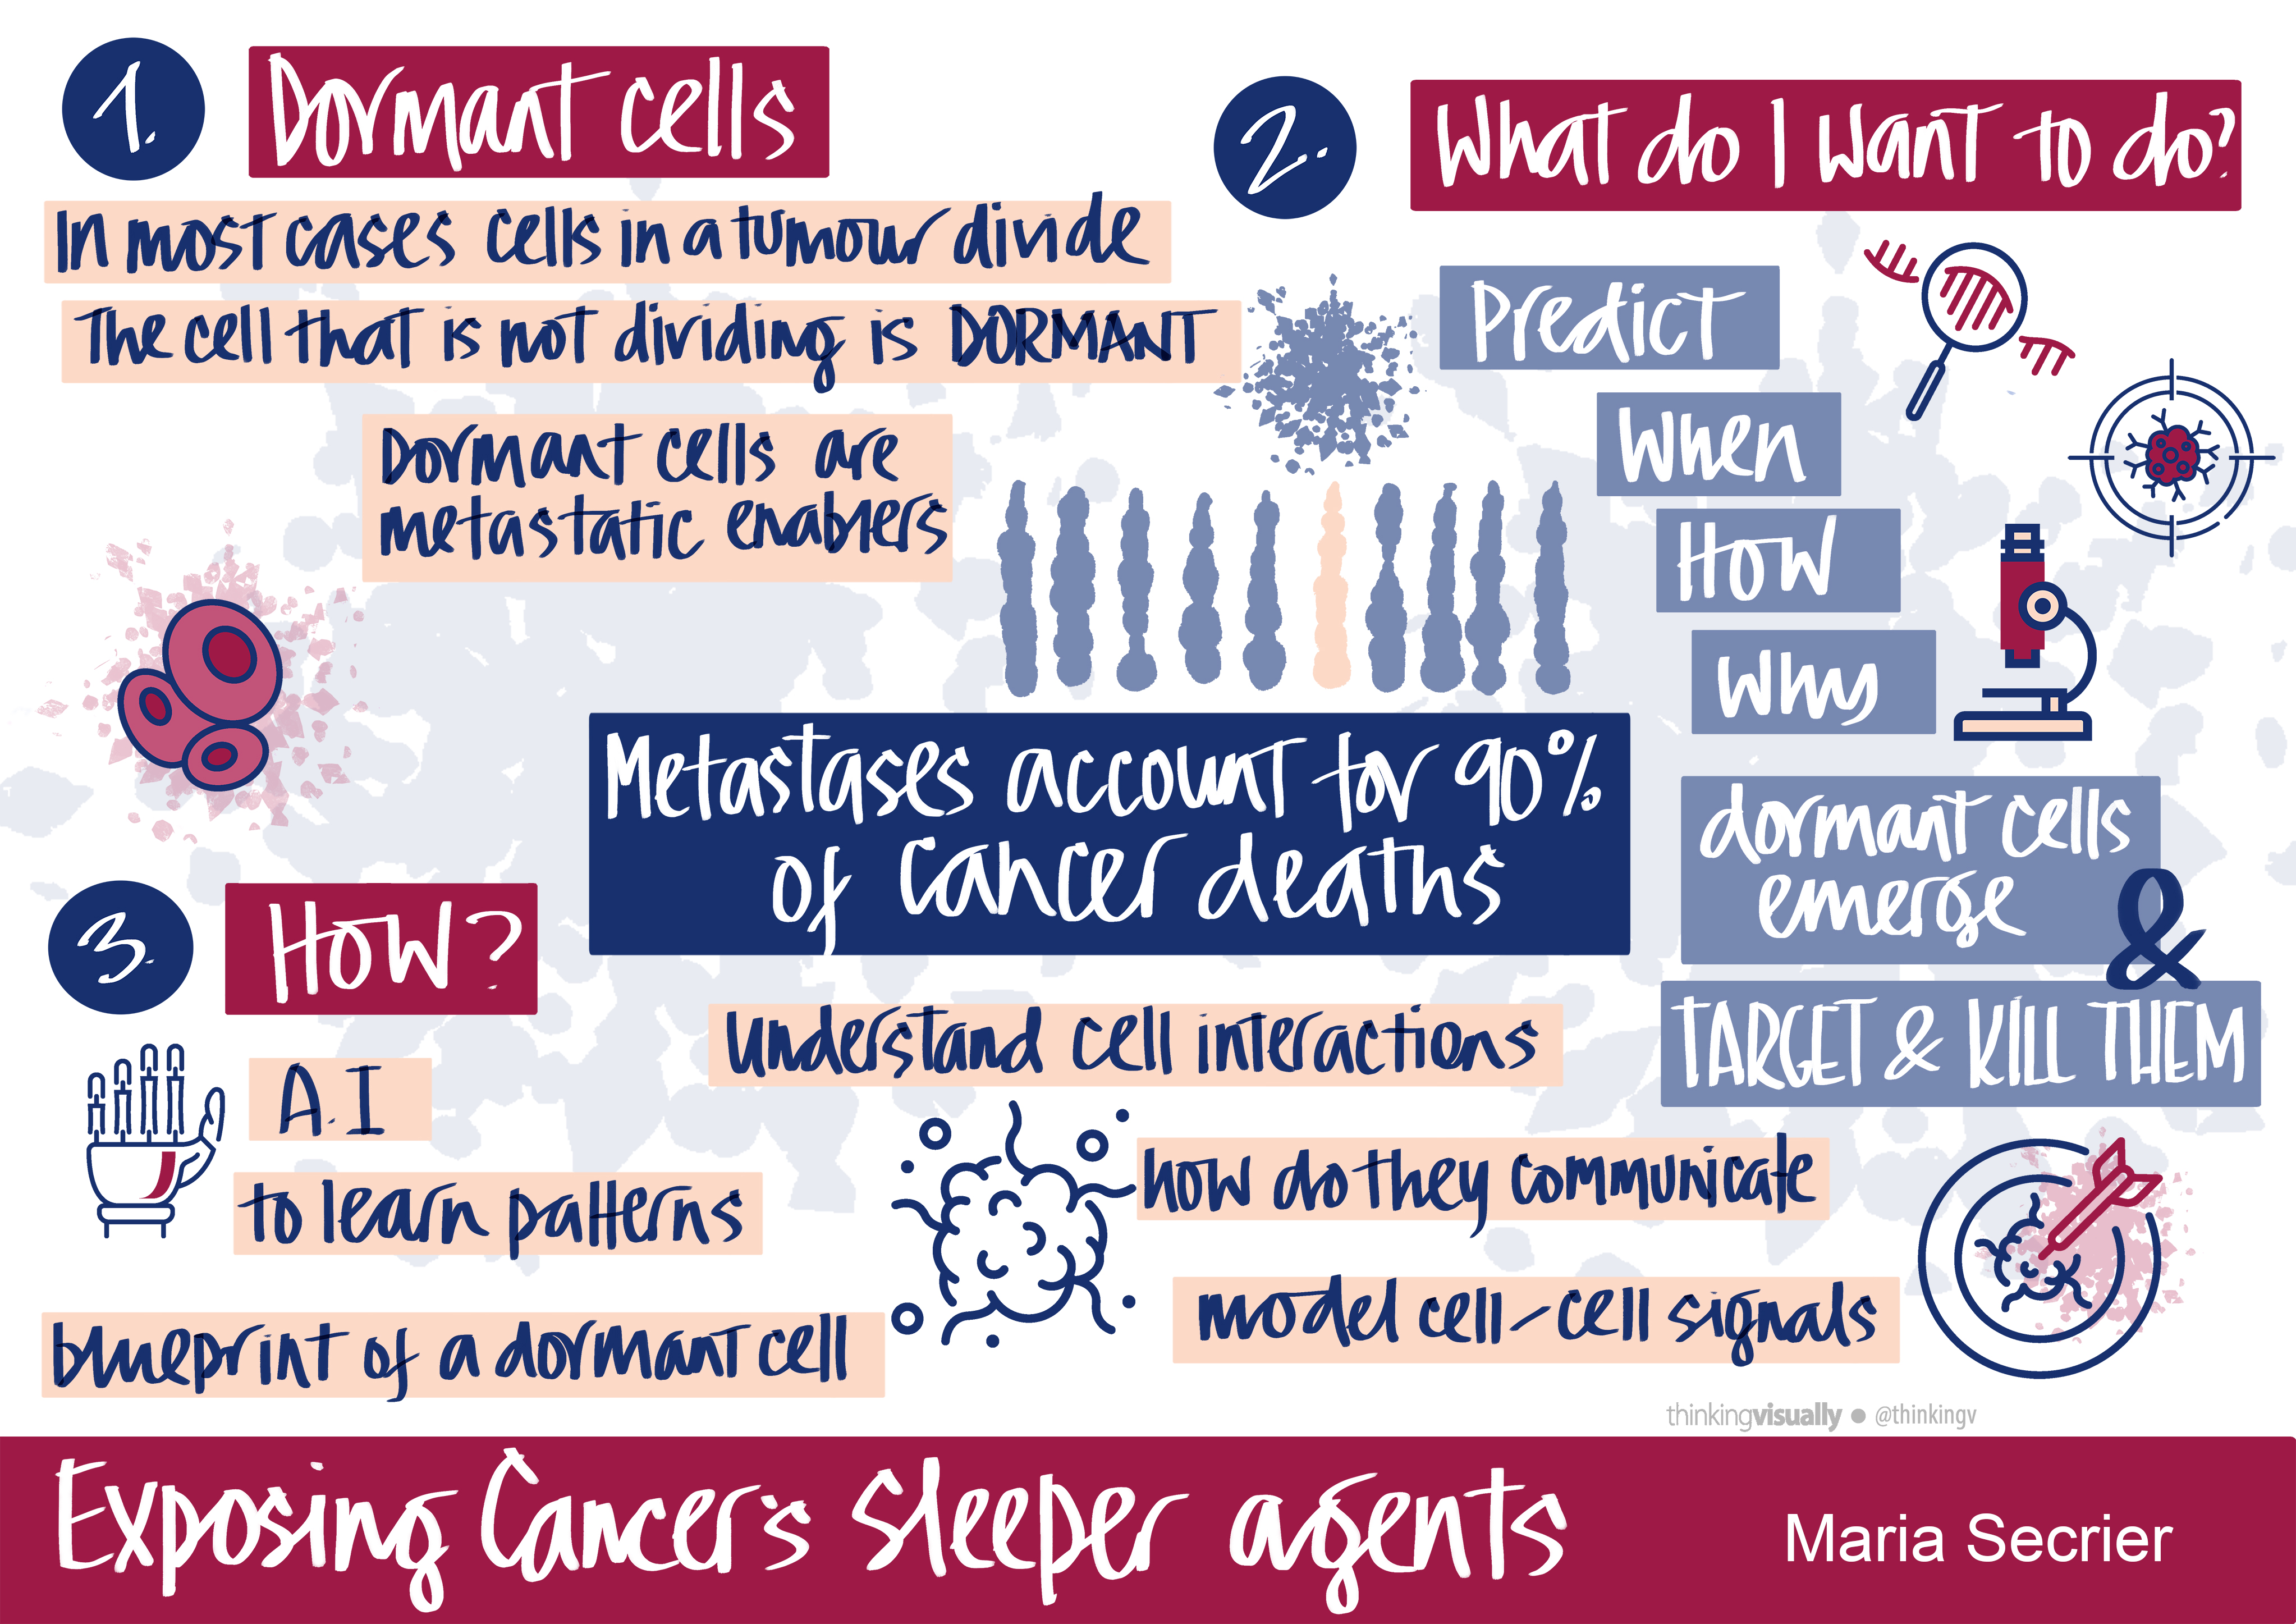 1.
Dormant cells
In most cases cells in a tumour divide
The cell that is not dividing is DORMANT
Dormant cells are
metastatic enablers
2.
What do I want to do?
Predict
When
How
Why
dormant cells
emerge
&
TARGET & KILL THEM
Metastases account for 90%
of cancer deaths
3.
How?
A.I
to learn patterns
blueprint of a dormant cell
Understand cell interactions
how do they communicate
model cell-cell signals
thinkingvisually ● @thinkingv
Exposing Cancer's sleeper agents
Maria Secrier